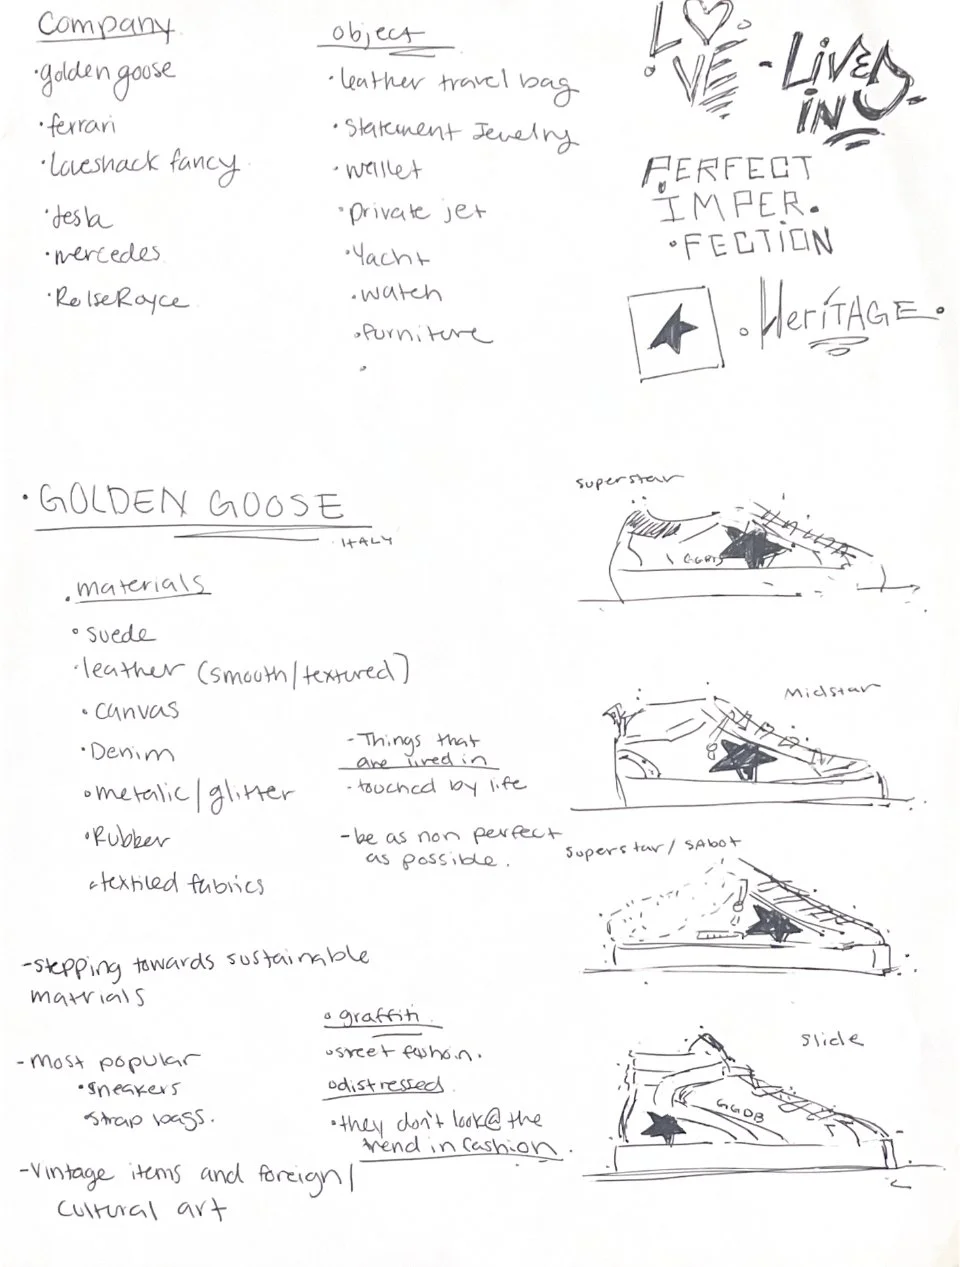 Company
·golden goose
·ferrari
·Loveshack fancy
·tesla
·mercedes
·RolseRoyce
object
·leather travel bag
·Statement Jewelry
·wallet
·private jet
·Yacht
·watch
·furniture
LOVE
-LIVED
IN
PERFECT
IMPER.
·FECTION
·HerITAGE·
·GOLDEN GOOSE
·ITALY
·materials
·suede
·leather (smooth/textured)
·canvas
·Denim
·metalic/glitter
·Rubber
·textiled fabrics
-Things that
are lived in
-touched by life
-be as non perfect
as possible.
-stepping towards sustainable
matrials
-most popular
·sneakers
strap bags.
-vintage items and foreign/
cultural art
·graffiti
·street fashion.
·distressed
·they don't look@ the
trend in fashion
superstar
Midstar
superstar/SAbot
slide
GGDB